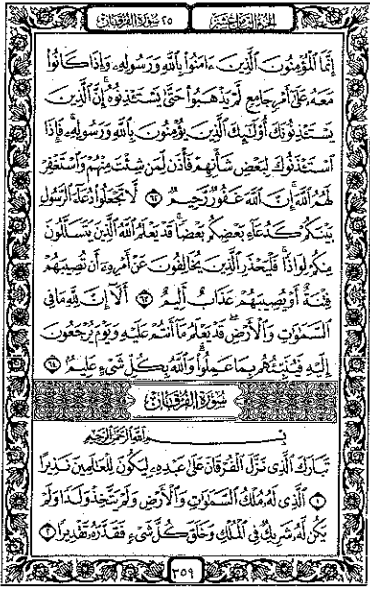 الجزء الثامن عشر ٢٥ سورة الفرقان
إِنَّمَا ٱلْمُؤْمِنُونَ ٱلَّذِينَ ءَامَنُوا۟ بِٱللَّهِ وَرَسُولِهِۦ وَإِذَا كَانُوا۟
مَعَهُۥ عَلَىٰٓ أَمْرٍ جَامِعٍ لَّمْ يَذْهَبُوا۟ حَتَّىٰ يَسْتَـْٔذِنُوهُ ۚ إِنَّ ٱلَّذِينَ
يَسْتَـْٔذِنُونَكَ أُو۟لَـٰٓئِكَ ٱلَّذِينَ يُؤْمِنُونَ بِٱللَّهِ وَرَسُولِهِۦ ۚ فَإِذَا
ٱسْتَـْٔذَنُوكَ لِبَعْضِ شَأْنِهِمْ فَأْذَن لِّمَن شِئْتَ مِنْهُمْ وَٱسْتَغْفِرْ
لَهُمُ ٱللَّهَ ۚ إِنَّ ٱللَّهَ غَفُورٌ رَّحِيمٌ ٦٢ لَّا تَجْعَلُوا۟ دُعَآءَ ٱلرَّسُولِ
بَيْنَكُمْ كَدُعَآءِ بَعْضِكُم بَعْضًا ۚ قَدْ يَعْلَمُ ٱللَّهُ ٱلَّذِينَ يَتَسَلَّلُونَ
مِنكُمْ لِوَاذًا ۚ فَلْيَحْذَرِ ٱلَّذِينَ يُخَالِفُونَ عَنْ أَمْرِهِۦٓ أَن تُصِيبَهُمْ
فِتْنَةٌ أَوْ يُصِيبَهُمْ عَذَابٌ أَلِيمٌ ٦٣ أَلَآ إِنَّ لِلَّهِ مَا فِى
ٱلسَّمَـٰوَٰتِ وَٱلْأَرْضِ ۖ قَدْ يَعْلَمُ مَآ أَنتُمْ عَلَيْهِ وَيَوْمَ يُرْجَعُونَ
إِلَيْهِ فَيُنَبِّئُهُم بِمَا عَمِلُوا۟ ۗ وَٱللَّهُ بِكُلِّ شَىْءٍ عَلِيمٌۢ ٦٤
سورة الفرقان
بِسْمِ ٱللَّهِ ٱلرَّحْمَـٰنِ ٱلرَّحِيمِ
تَبَارَكَ ٱلَّذِى نَزَّلَ ٱلْفُرْقَانَ عَلَىٰ عَبْدِهِۦ لِيَكُونَ لِلْعَـٰلَمِينَ نَذِيرًا
١ ٱلَّذِى لَهُۥ مُلْكُ ٱلسَّمَـٰوَٰتِ وَٱلْأَرْضِ وَلَمْ يَتَّخِذْ وَلَدًا وَلَمْ
يَكُن لَّهُۥ شَرِيكٌ فِى ٱلْمُلْكِ وَخَلَقَ كُلَّ شَىْءٍ فَقَدَّرَهُۥ تَقْدِيرًا ٢
٣٥٩